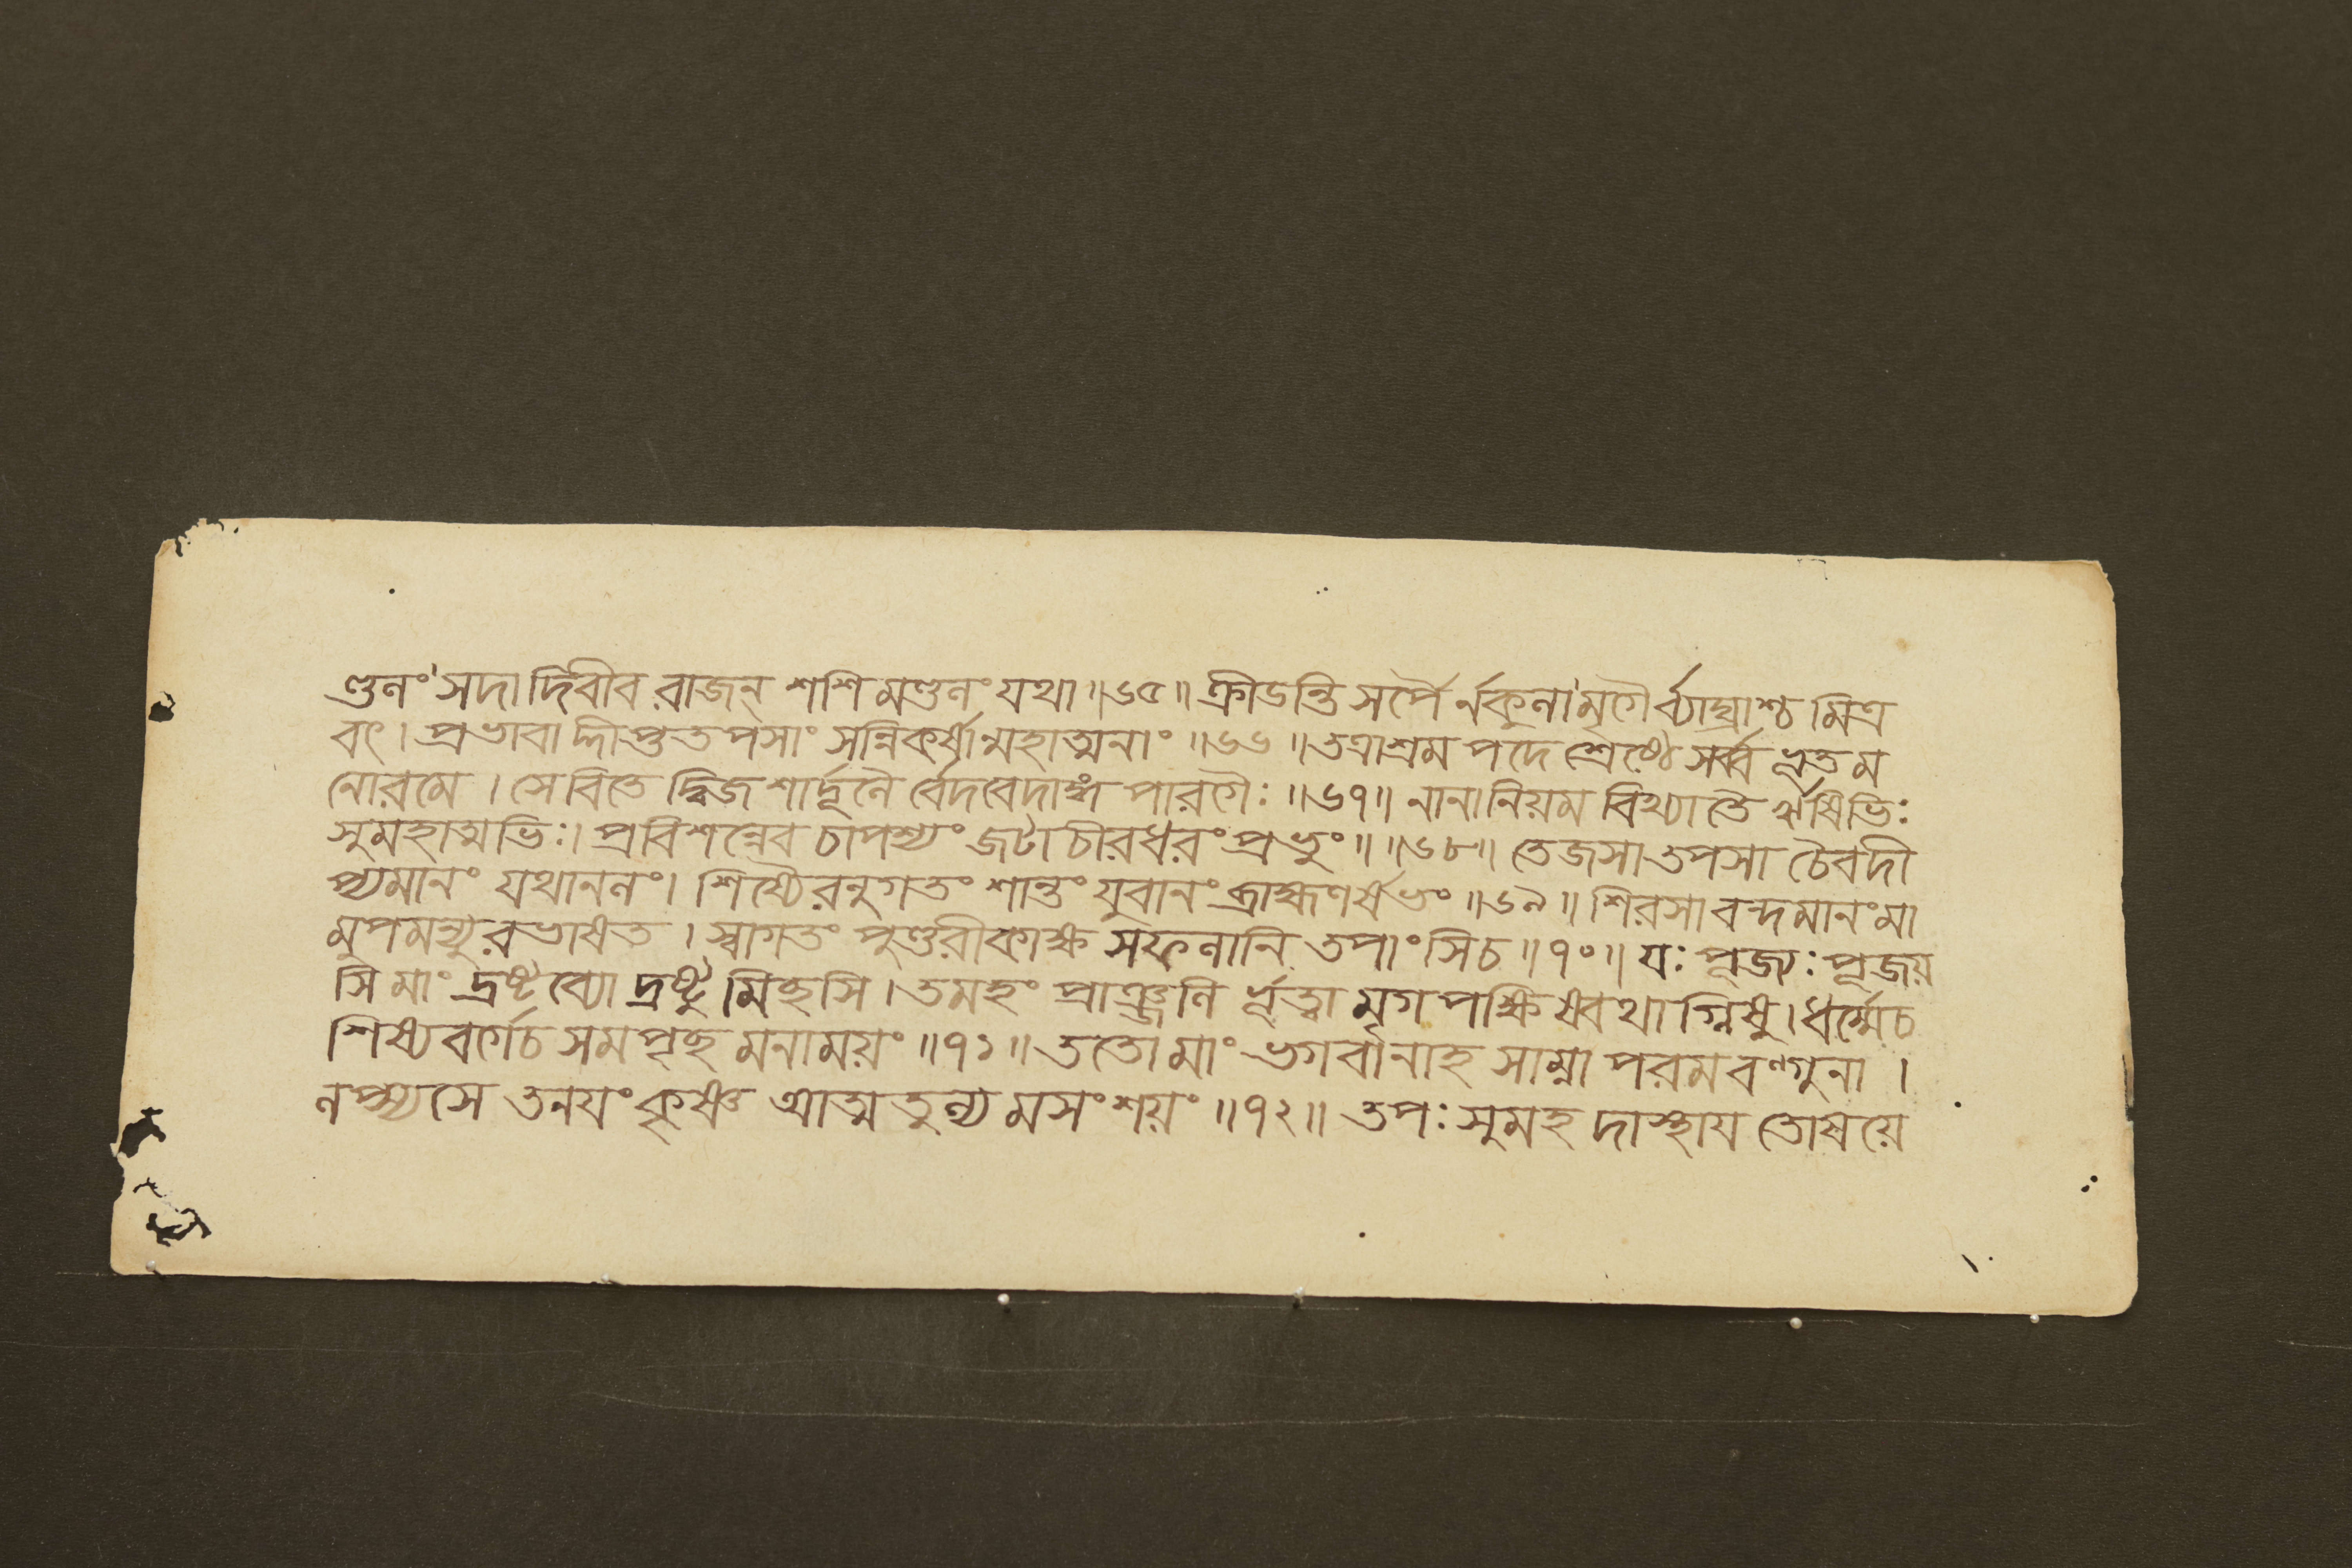 ণ্ডলং সদা দিবীব রাজন্ শশি মণ্ডলং যথা॥৬৫॥ ক্রীডন্তি সর্পৈ র্নকুলা মৃগৈ র্ব্যাঘ্রাশ্চ মিত্র
বৎ। প্রভাবা দ্দীপ্ততপসাং সন্নিকর্ষান্মহাত্মনাং॥৬৬॥তত্রাশ্রম পদে শ্রেষ্ঠে সর্ব্ব ভূত ম
নোরমে। সেবিতে দ্বিজ শার্দূলৈ র্বেদবেদাঙ্গ পারগৈঃ॥৬৭॥ নানা নিয়ম বিখ্যাতৈ ঋষিভিঃ
সুমহাত্মভিঃ। প্রবিশন্নেব চাপশ্যং জটা চীরধরং প্রভুং॥॥৬৮॥ তেজসা তপসা চৈবদী
প্যমানং যথাননং। শিষ্যৈরনুগতং শান্তং যুবানং ব্রাহ্মণর্ষভং॥৬৯॥ শিরসা বন্দমানং মা
মুপমন্যুরভাষত। স্বাগতং পুণ্ডরীকাক্ষ সফলানি তপাংসিচ॥৭০॥ যঃ পূজ্যঃ পূজয়
সি মাং দ্রষ্টব্যো দ্রষ্টু মিচ্ছসি। তমহং প্রাঞ্জলি র্ভূত্বা মৃগ পক্ষি ষ্বথাগ্নিষু। ধর্ম্মেচ
শিষ্যবর্গেচ সমপৃচ্ছ মনাময়ং॥৭১॥ ততো মাং ভগবানাহ সাম্না পরমবল্গুনা।
লপ্স্যসে তনয়ং কৃষ্ণ আত্মতুল্য মসংশয়ং॥৭২॥ তপঃ সুমহ দাস্থায তোষয়ে